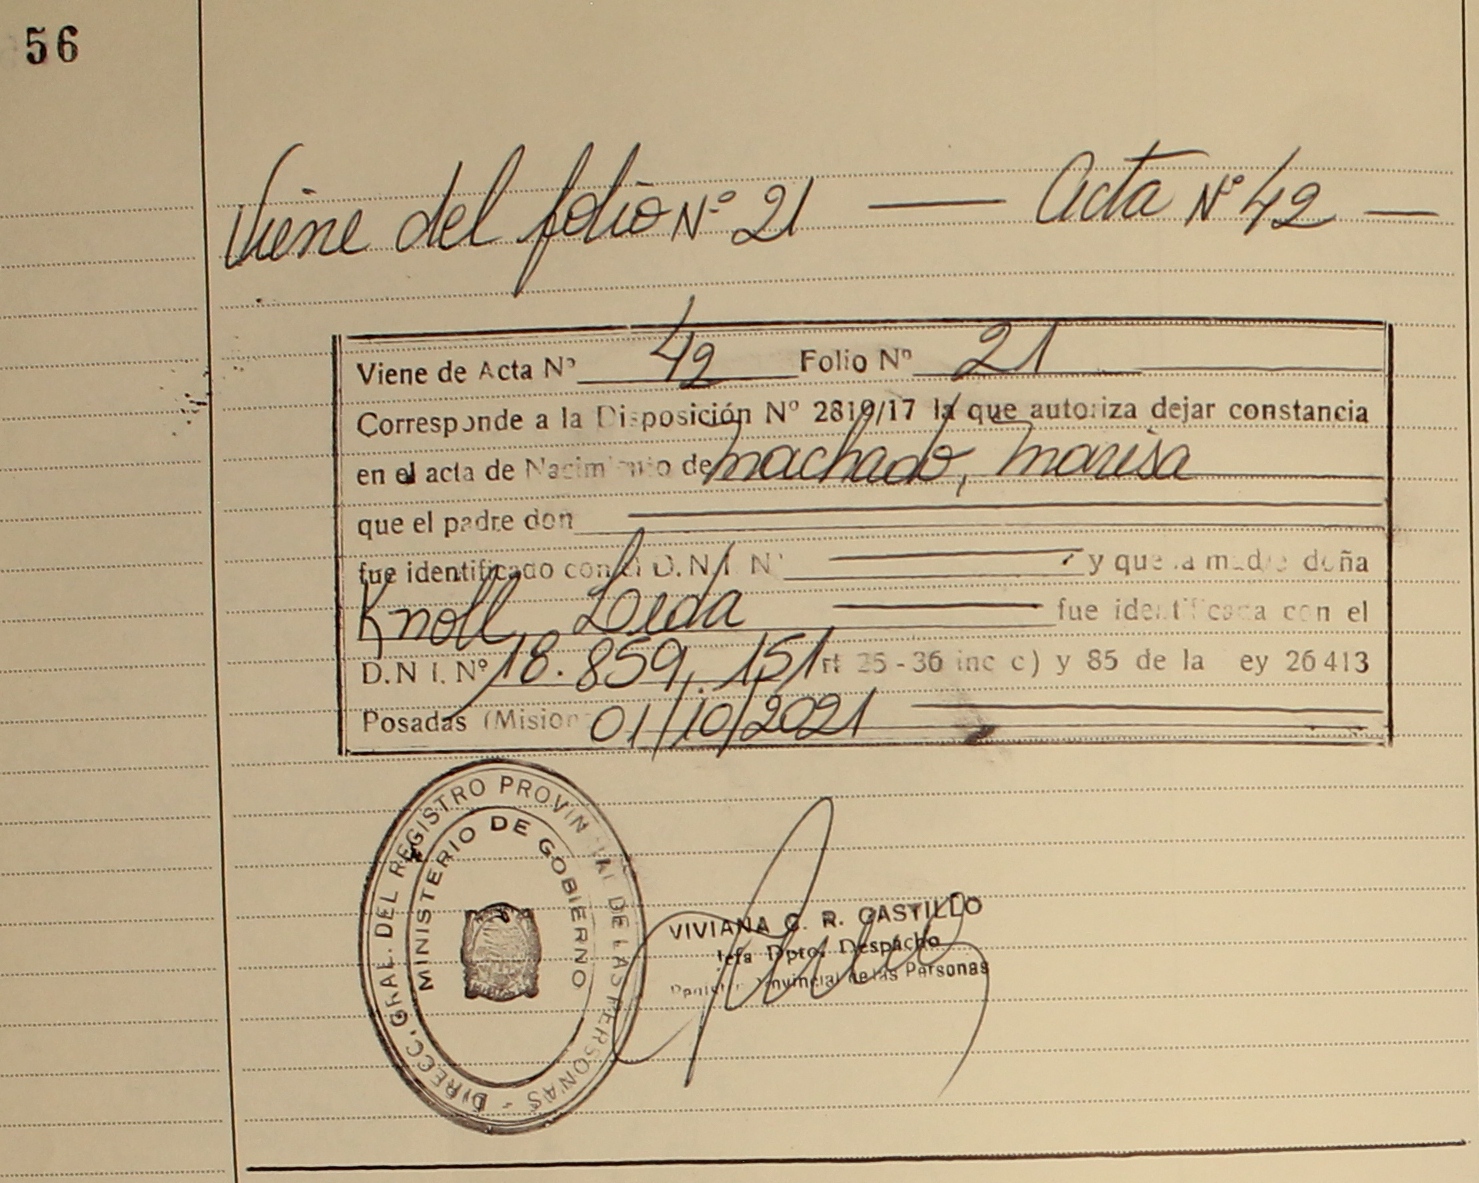 56
Viene del folio Nº 21 — Acta Nº 42 —
Viene de Acta Nº 42 Folio Nº 21
Corresponde a la Disposición Nº 2819/17 la que autoriza dejar constancia
en el acta de Nacimiento de Machado, Marisa
que el padre don
fue identificado con la D.N.I. Nº y que la madre doña
Knoll, Leda fue identificada con el
D.N.I. Nº 18.859.151 rt 25-36 inc c) y 85 de la ey 26413
Posadas (Mision 01/10/2021
DIRECC. GRAL. DEL REGISTRO PROVINCIAL DE LAS PERSONAS -
MINISTERIO DE GOBIERNO
VIVIANA G. R. CASTILLO
Jefa Dpto. Despacho
Provincial de las Personas